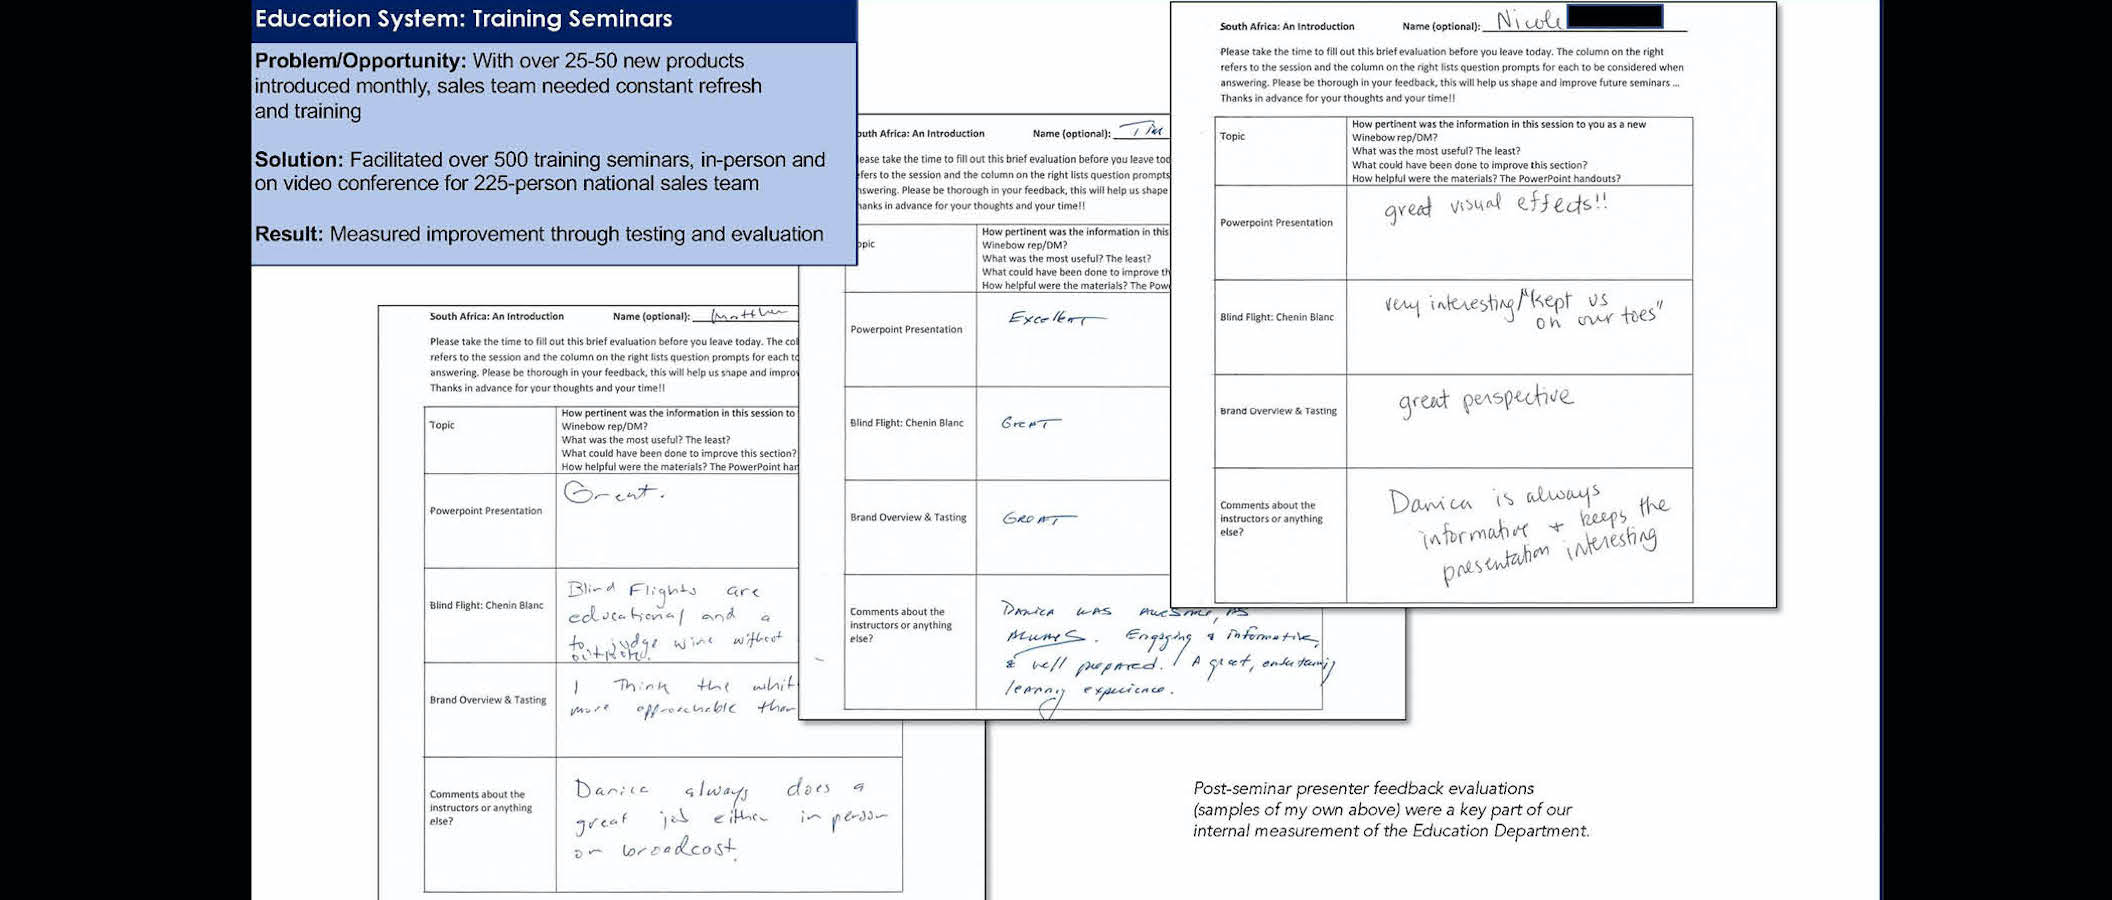 Education System: Training Seminars
Problem/Opportunity: With over 25-50 new products
introduced monthly, sales team needed constant refresh
and training
Solution: Facilitated over 500 training seminars, in-person and
on video conference for 225-person national sales team
Result: Measured improvement through testing and evaluation
South Africa: An Introduction Name (optional): Matthew
Please take the time to fill out this brief evaluation before you leave today. The col
refers to the session and the column on the right lists question prompts for each to
answering. Please be thorough in your feedback, this will help us shape and improv
Thanks in advance for your thoughts and your time!!
Topic
How pertinent was the information in this session to
Winebow rep/DM?
What was the most useful? The least?
What could have been done to improve this section?
How helpful were the materials? The PowerPoint han
Powerpoint Presentation
Great.
Blind Flight: Chenin Blanc
Blind Flights are
educational and a
to judge wine without
Brand Overview & Tasting
I Think the whit
more approachable than
Comments about the
instructors or anything
else?
Danica always does a
great job either in person
or broadcast.
outh Africa: An Introduction Name (optional): Tim
lease take the time to fill out this brief evaluation before you leave tod
fers to the session and the column on the right lists question prompts
nswering. Please be thorough in your feedback, this will help us shape
hanks in advance for your thoughts and your time!!
opic
How pertinent was the information in this
Winebow rep/DM?
What was the most useful? The least?
What could have been done to improve th
How helpful were the materials? The Pow
Powerpoint Presentation
Excellent
Blind Flight: Chenin Blanc
Great
Brand Overview & Tasting
Great
Comments about the
instructors or anything
else?
Danica was awesome, as
always. Engaging & informative
& well prepared. A great, entertaining
learning experience.
South Africa: An Introduction Name (optional): Nicole
Please take the time to fill out this brief evaluation before you leave today. The column on the right
refers to the session and the column on the right lists question prompts for each to be considered when
answering. Please be thorough in your feedback, this will help us shape and improve future seminars ...
Thanks in advance for your thoughts and your time!!
Topic
How pertinent was the information in this session to you as a new
Winebow rep/DM?
What was the most useful? The least?
What could have been done to improve this section?
How helpful were the materials? The PowerPoint handouts?
Powerpoint Presentation
great visual effects!!
Blind Flight: Chenin Blanc
very interesting/"kept us
on our toes"
Brand Overview & Tasting
great perspective
Comments about the
instructors or anything
else?
Danica is always
informative + keeps the
presentation interesting
Post-seminar presenter feedback evaluations
(samples of my own above) were a key part of our
internal measurement of the Education Department.